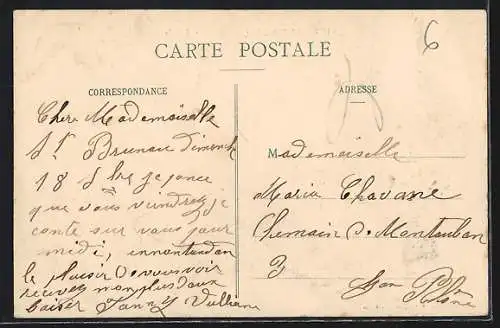 6
CARTE POSTALE
CORRESPONDANCE
ADRESSE
Chere Mademoiselle
St Bruneau Dimench
18 je pence
que vous viendrez je
conte sur vous pour
midi, en nantandan
le plaisir de vous voir
recevez mon plus doux
baiser Fanny Vullian
Mademoiselle
Maria Chavane
Chemain de Montauban
3
Lyon Rhone